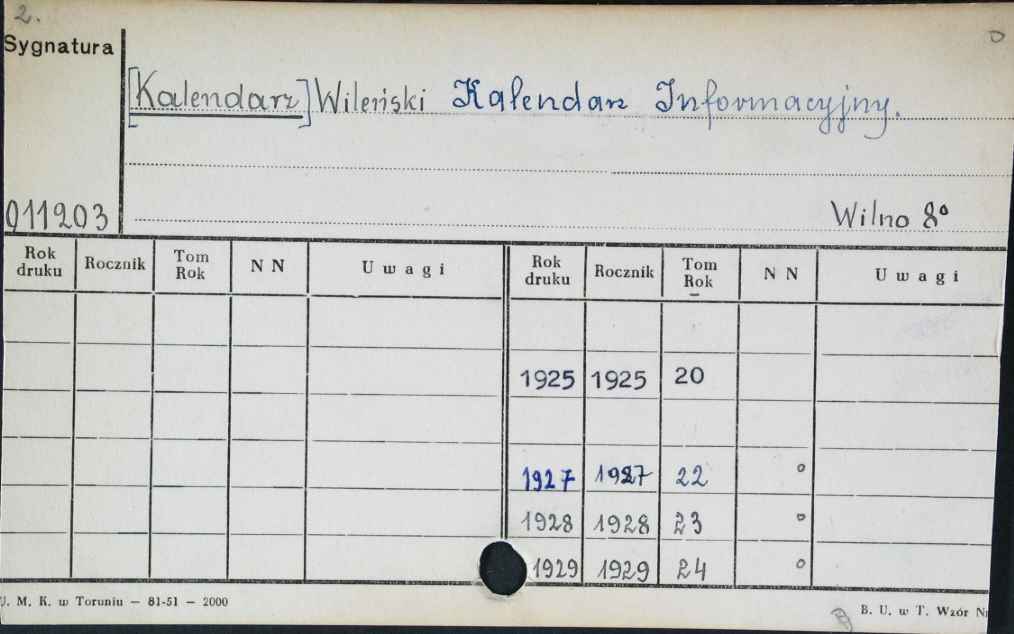 2.
Sygnatura
[Kalendarz] Wileński Kalendarz Informacyjny.
011203
Wilno 8°
Rok druku Rocznik Tom Rok N N Uwagi Rok druku Rocznik Tom Rok N N Uwagi
1925 1925 20
1927 1927 22 o
1928 1928 23 o
1929 1929 24 o
U. M. K. w Toruniu — 81-51 — 2000
B. U. w T. Wzór Nr